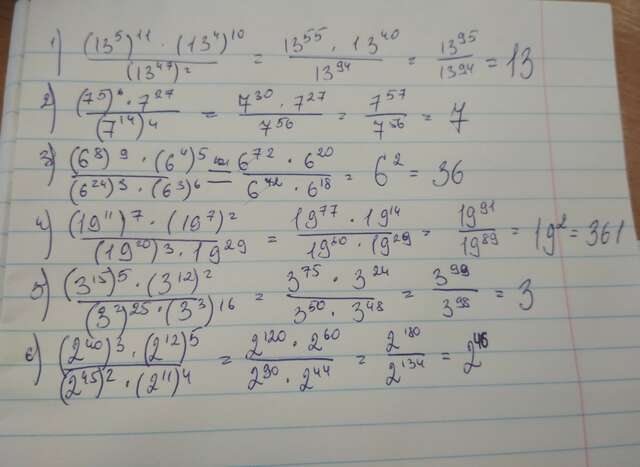 1) (13⁵)¹¹ · (13⁴)¹⁰ / (13⁴⁷)² = 13⁵⁵ · 13⁴⁰ / 13⁹⁴ = 13⁹⁵ / 13⁹⁴ = 13
2) (7⁵)⁶ · 7²⁷ / (7¹⁴)⁴ = 7³⁰ · 7²⁷ / 7⁵⁶ = 7⁵⁷ / 7⁵⁶ = 7
3) (6⁸)⁹ · (6⁴)⁵ / (6²⁴)³ · (6³)⁶ = 6⁷² · 6²⁰ / 6⁷² · 6¹⁸ = 6² = 36
4) (19¹¹)⁷ · (19⁷)² / (19²⁰)³ · 19²⁹ = 19⁷⁷ · 19¹⁴ / 19⁶⁰ · 19²⁹ = 19⁹¹ / 19⁸⁹ = 19² = 361
5) (3¹⁵)⁵ · (3¹²)² / (3²)²⁵ · (3³)¹⁶ = 3⁷⁵ · 3²⁴ / 3⁵⁰ · 3⁴⁸ = 3⁹⁹ / 3⁹⁸ = 3
6) (2⁴⁰)³ · (2¹²)⁵ / (2⁴⁵)² · (2¹¹)⁴ = 2¹²⁰ · 2⁶⁰ / 2⁹⁰ · 2⁴⁴ = 2¹⁸⁰ / 2¹³⁴ = 2⁴⁶